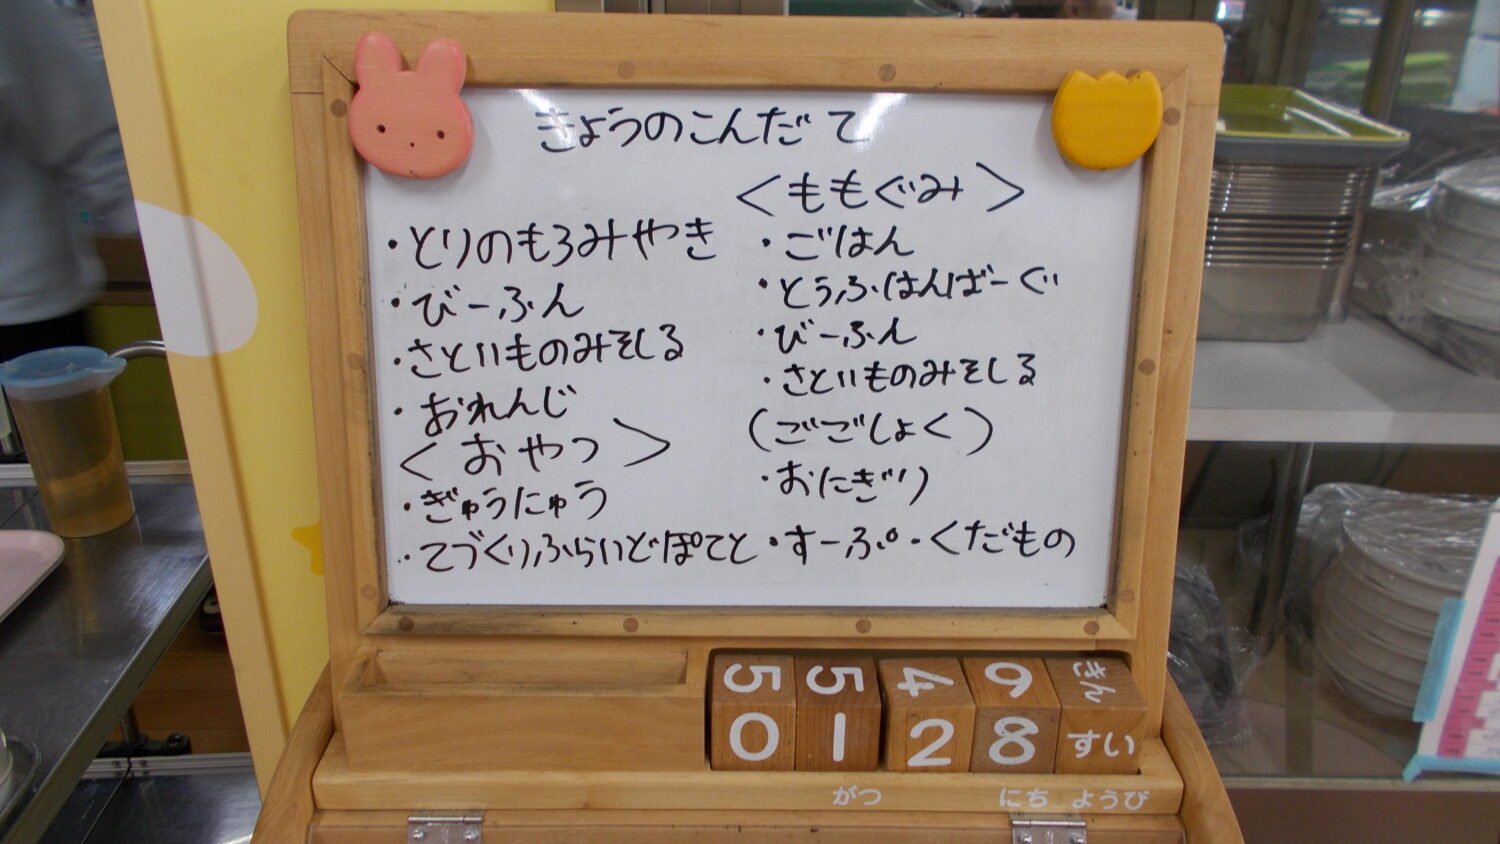 きょうのこんだて
・とりのもろみやき
・びーふん
・さといものみそしる
・おれんじ
＜おやつ＞
・ぎゅうにゅう
・てづくりふらいどぽてと
＜ももぐみ＞
・ごはん
・とうふはんばーぐ
・びーふん
・さといものみそしる
（ごごしょく）
・おにぎり
・すーぷ・くだもの
5 5 4 9 きん
0 1 2 8 すい
がつ にち ようび